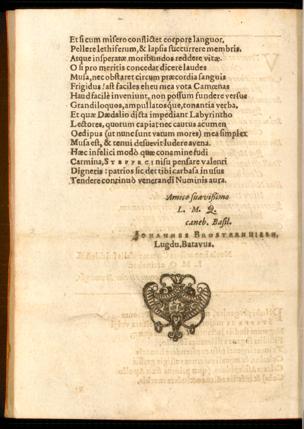 Et si cum misero conflictet corpore languor,
Pellere lethiferum, & lapsis succurrere membris.
Atque insperatæ moribundos reddere vitæ.
O si pro meritis concedat dicere laudes
Musa, nec obstaret circum præcordia sanguis
Frigidus! ast faciles eheu mea vota Camœnas
Haud facilè inveniunt, non possum fundere versus
Grandiloquos, ampullatosque, tonantia verba.
Et quæ Dædalio dista impediant Labyrintho
Lectores, quorum capiat nec cautus acumen
Oedipus (ut nunc sunt vatum mores) mea simplex
Musa est, & tenui desuevit ludere avena.
Hæc infelici modò quæ conamine fudi
Carmina, nisu pensare valenti
Digneris: patrios sic det tibi carbasa in usus
Tendere continuò venerandi Numinis aura.
Amico suavissimo
L. M. Q.
caneb. Basil.
JOHANNES
Lugdu. Batavus.